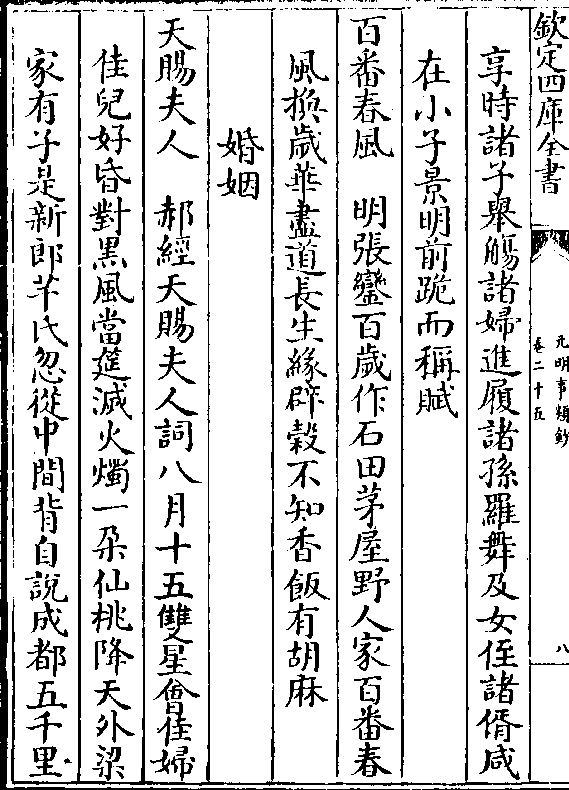 欽定四庫全書
元明事類鈔
卷二十五
八
享時諸子舉觴諸婦進履諸孫羅舞及女侄諸㑞咸
在小子景明前跪而稱賦
百番春風　明張鑾百歲作石田茅屋野人家百番春
風換歲華盡道長生緣辟糓不知香飯有胡麻
婚姻
天賜夫人　郝經天賜夫人詞八月十五雙星㑹佳婦
佳兒好昏對黒風當筵滅火燭一朶仙桃降天外梁
家有子是新郎芊氏忽從中間背自說成都五千里